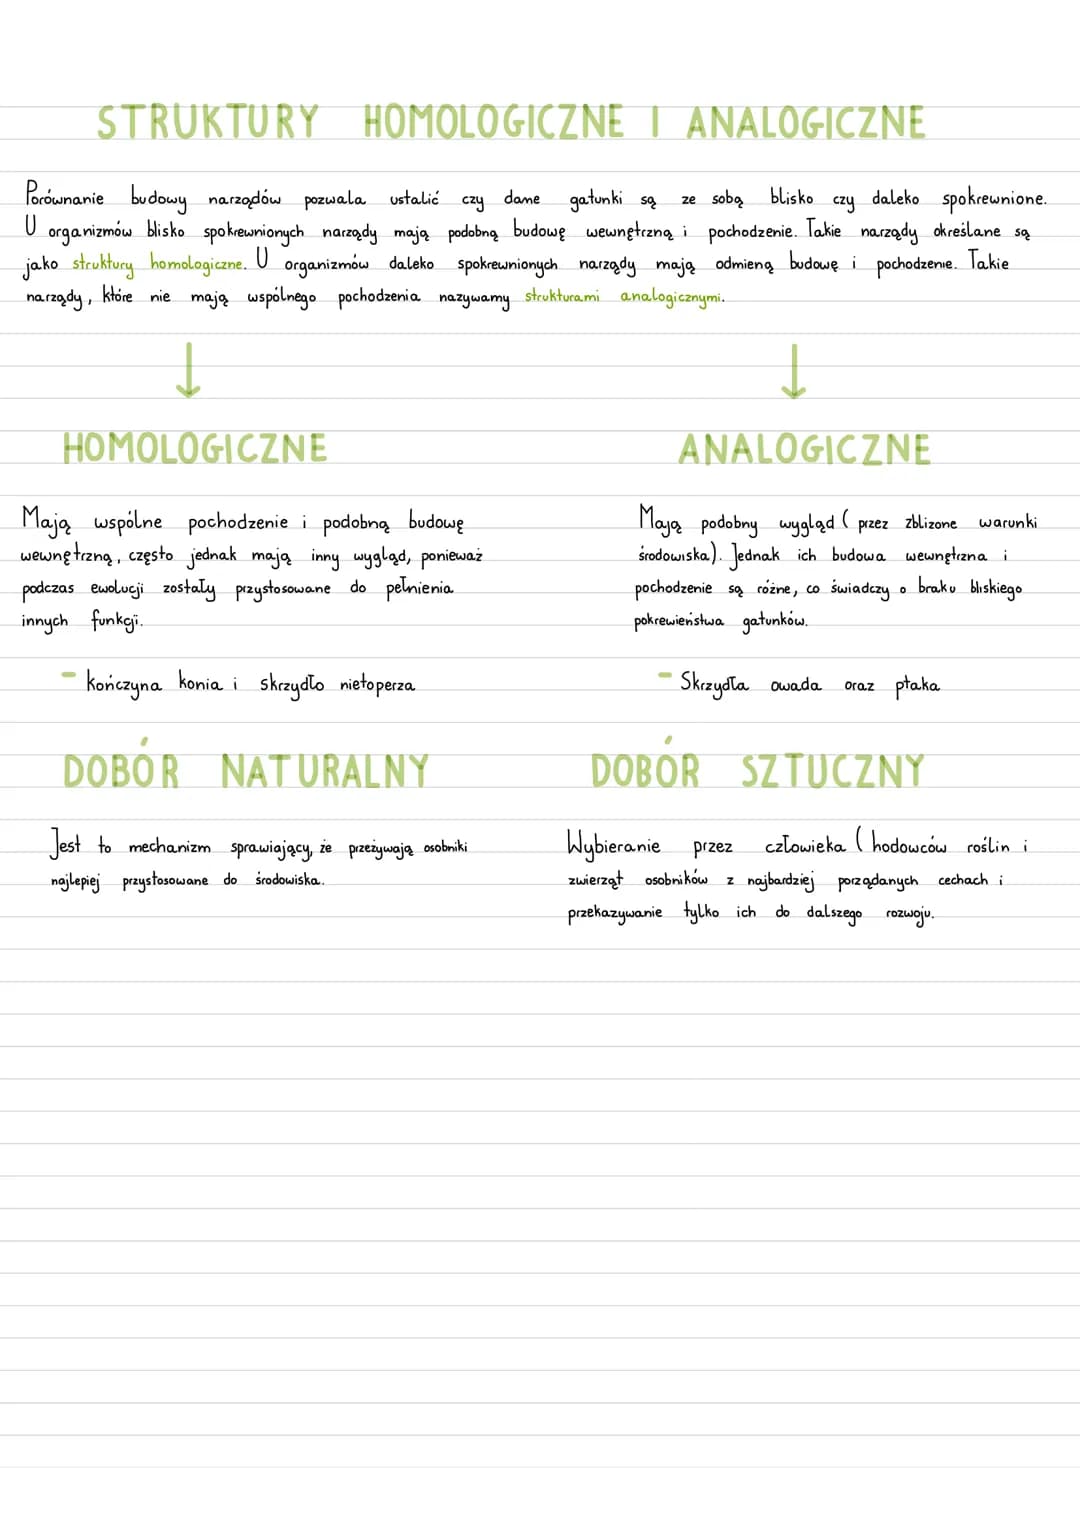 STRUKTURY HOMOLOGICZNE I ANALOGICZNE
Porównanie budowy narządów pozwala ustalić czy dane gatunki są ze sobą blisko czy daleko spokrewnione.
U organizmów blisko spokrewnionych narządy mają podobną budowę wewnętrzną i pochodzenie. Takie narządy określane są
jako struktury homologiczne. U organizmów daleko spokrewnionych narządy mają odmieną budowę i pochodzenie. Takie
narządy, które nie mają wspólnego pochodzenia nazywamy strukturami analogicznymi.
HOMOLOGICZNE
Mają wspólne pochodzenie i podobną budowę
wewnętrzną, często jednak mają inny wygląd, ponieważ
podczas ewolucji zostały przystosowane do pełnienia
innych funkcji.
- kończyna konia i skrzydło nietoperza
ANALOGICZNE
Mają podobny wygląd ( przez zbliżone warunki
środowiska). Jednak ich budowa wewnętrzna i
pochodzenie są różne, co świadczy o braku bliskiego
pokrewieństwa gatunków.
- Skrzydła owada oraz ptaka
DOBÓR NATURALNY
Jest to mechanizm sprawiający, że przeżywają osobniki
najlepiej przystosowane do środowiska.
DOBÓR SZTUCZNY
Wybieranie przez człowieka ( hodowców roślin i
zwierząt osobników z najbardziej porządanych cechach i
przekazywanie tylko ich do dalszego rozwoju.